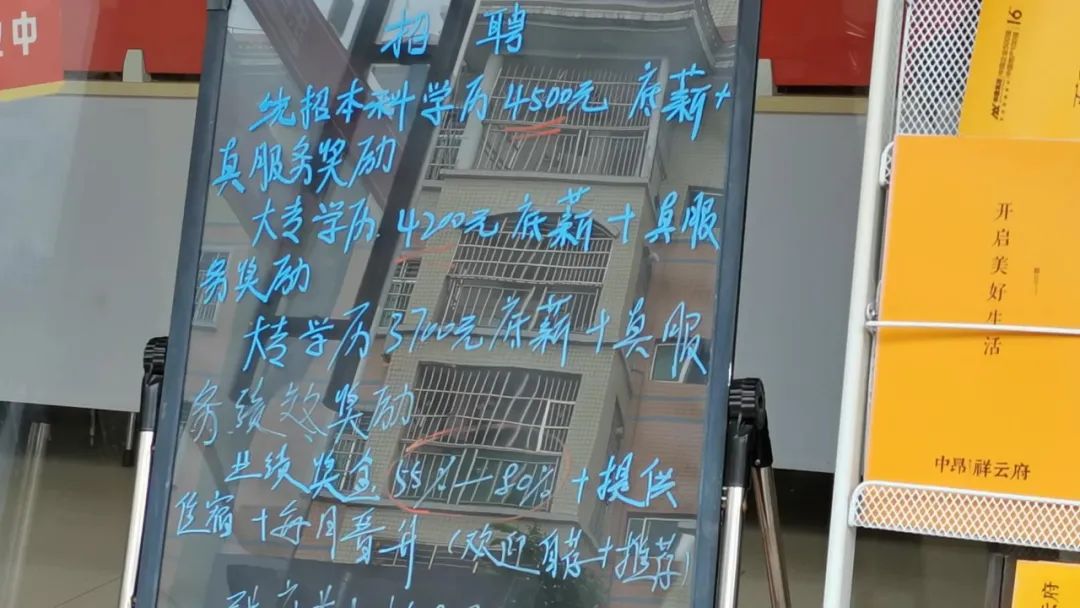 招聘
统招本科学历4500元底薪+
真服务奖励
大专学历.4200元底薪+真服
务奖励
大专学历3700元底薪+真服
务绩效奖励
业绩奖金55%—80%+提供
住宿+每月晋升(欢迎自荐+推荐)
中
16
开启美好生活
中昂祥云府
云府